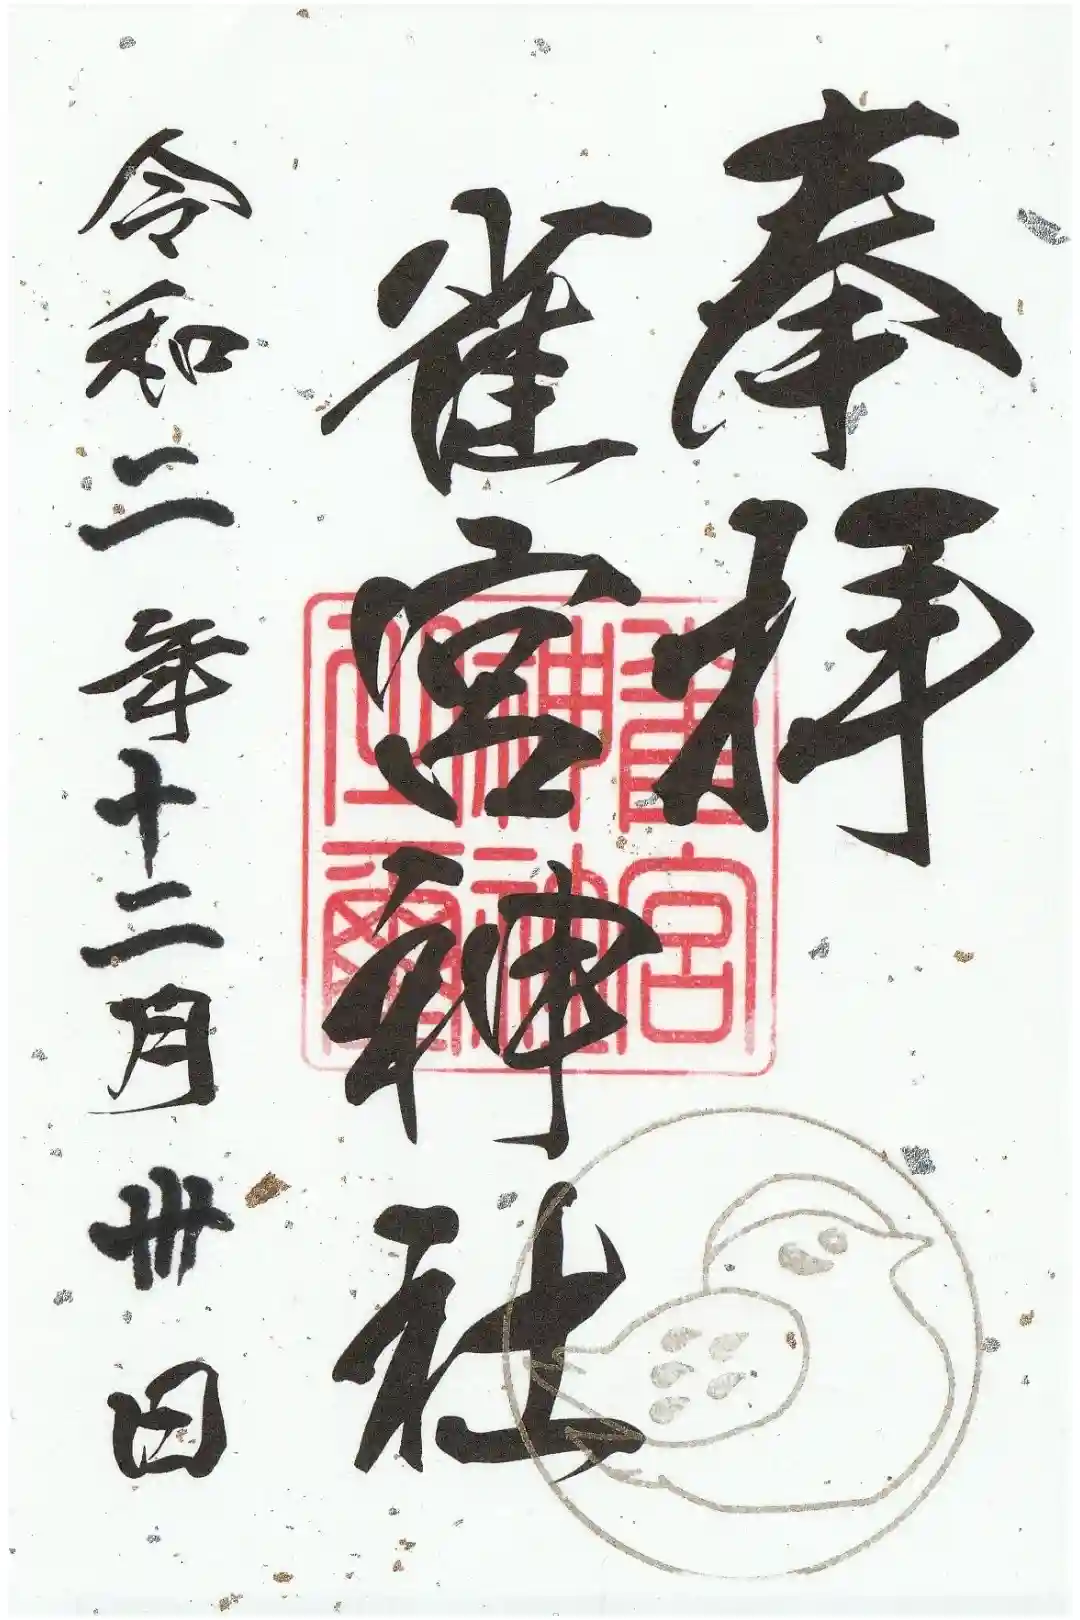 奉拝
雀宮神社
雀宮
神社
令和二年十二月卅日